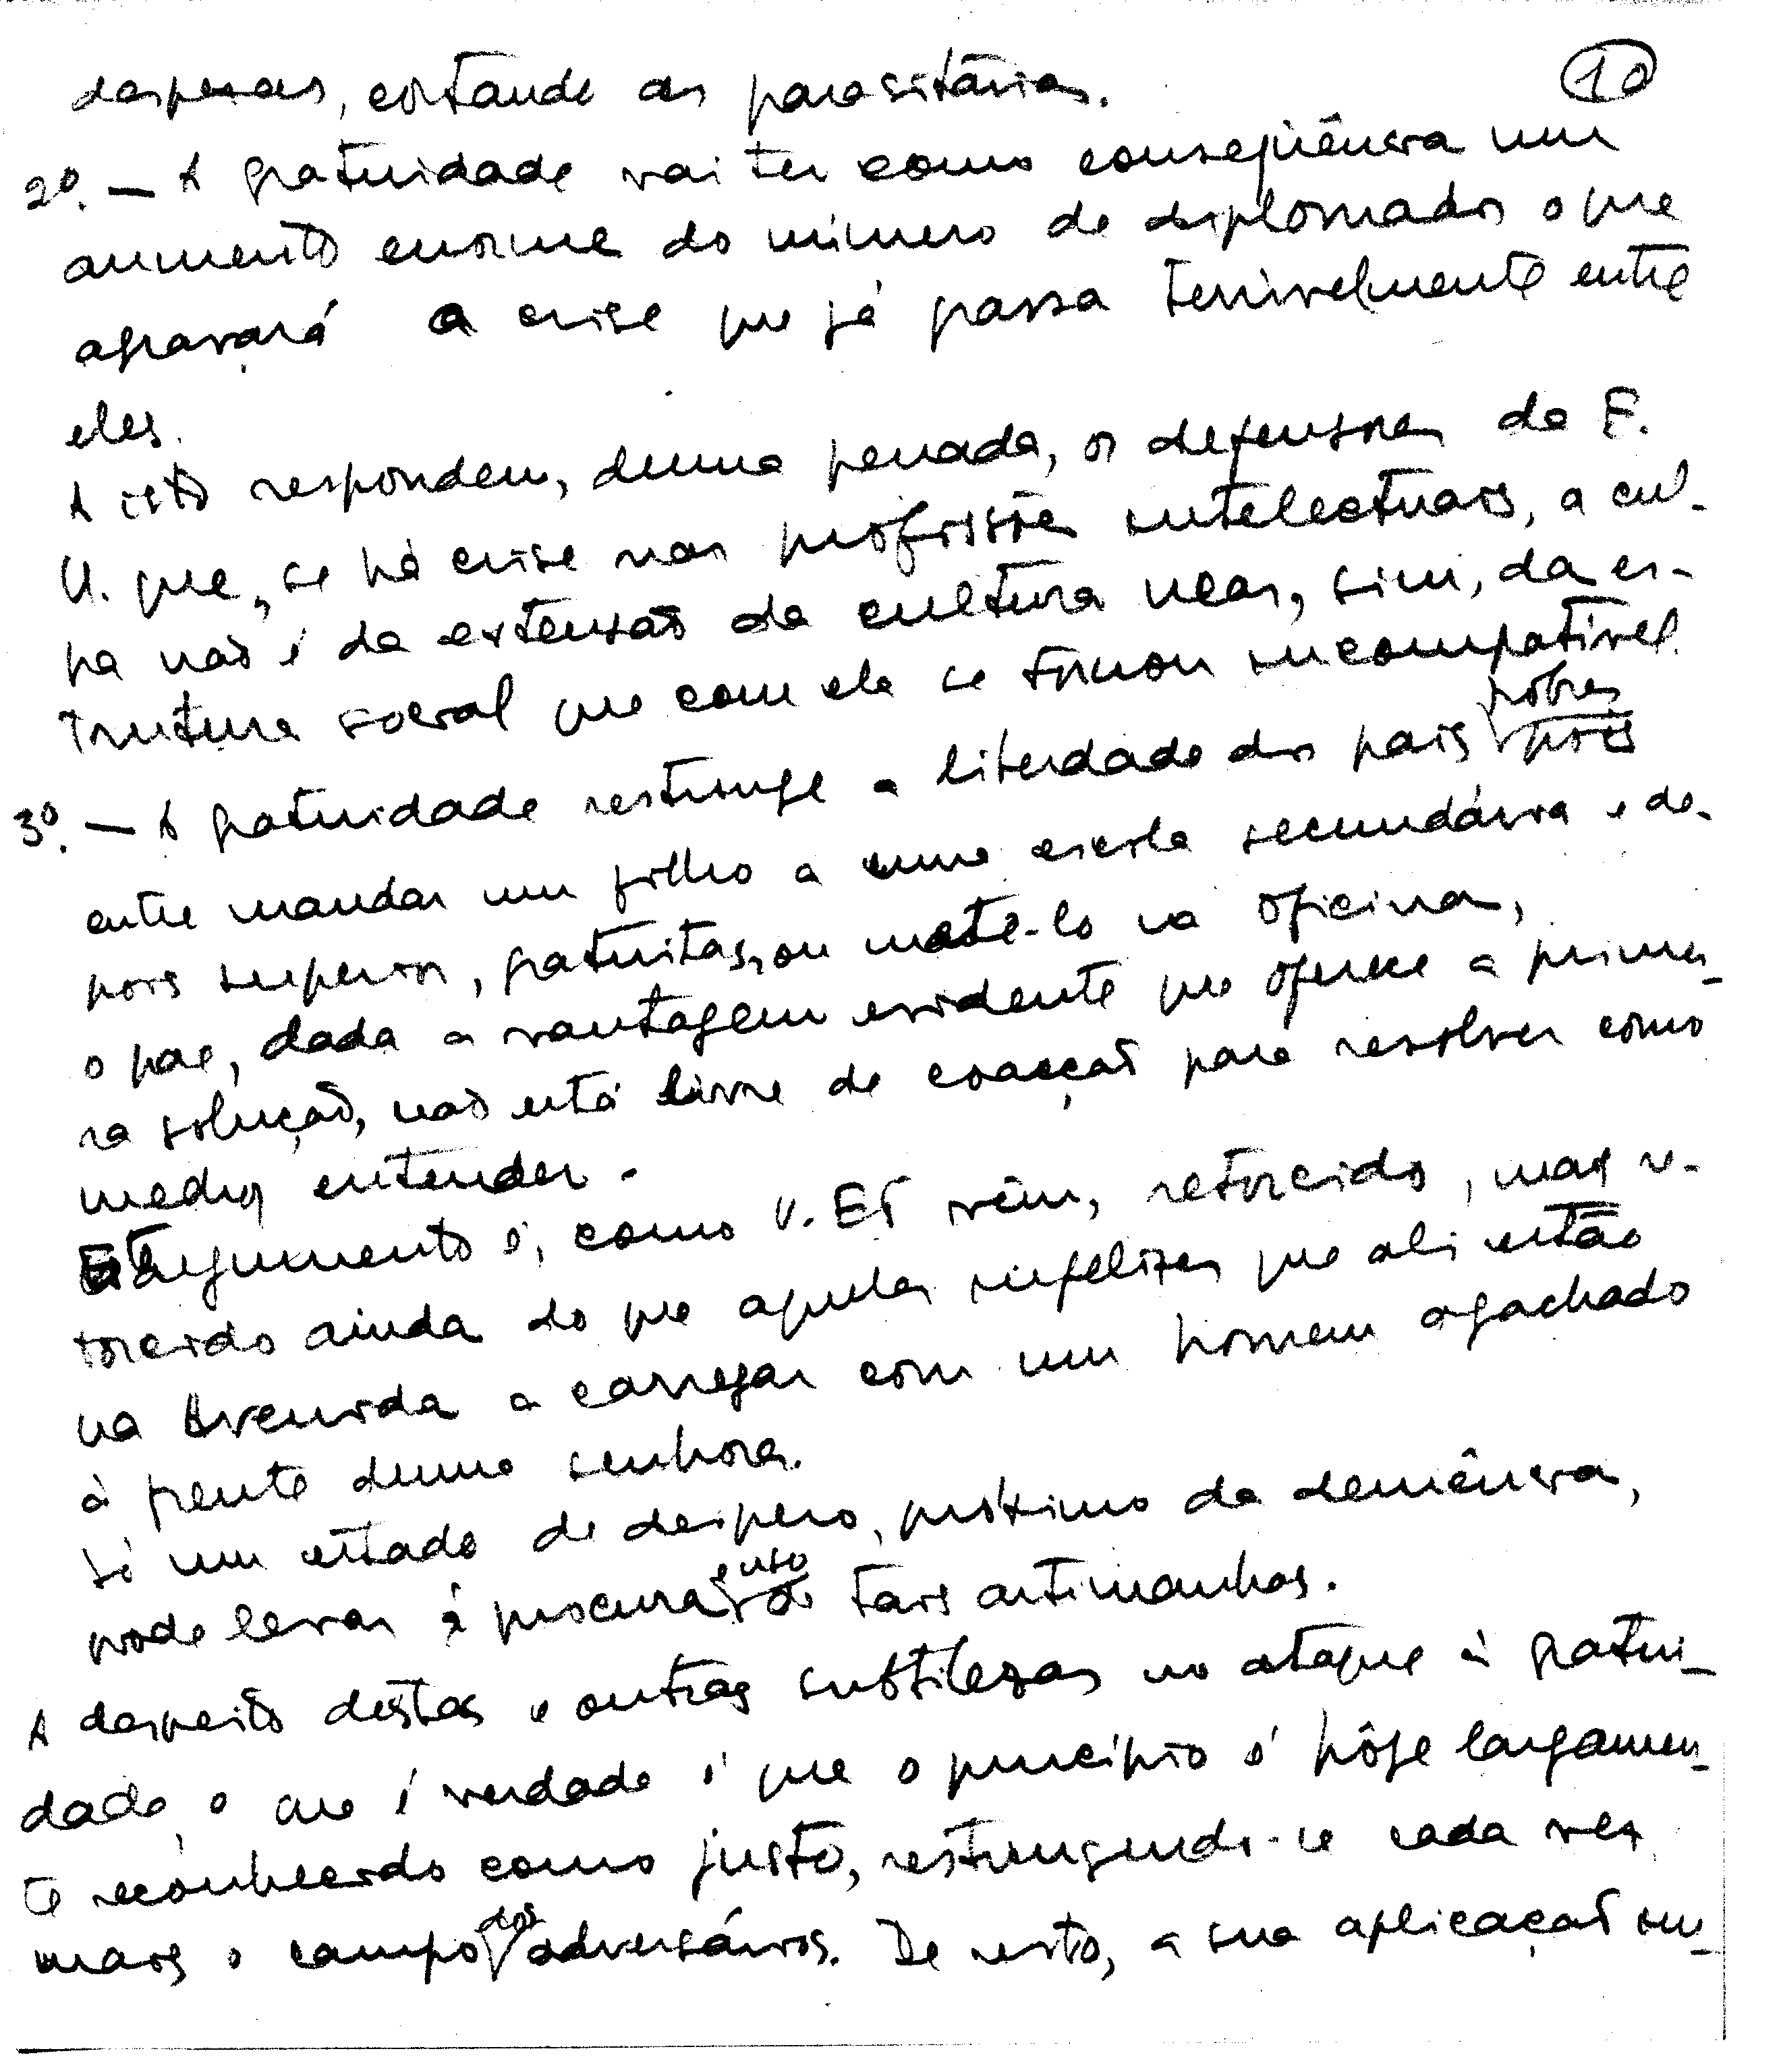 despesas, cortando as parasitárias.
10
2º. — A gratuidade vai ter como conseqüência um
aumento enorme do número de diplomados o que
agravará a crise que já grassa terrivelmente entre
eles.
A isto respondem, duma penada, os defensores da E.
U. que, se há crise nas profissões intelectuais, a cul-
pa não é da extensão da cultura mas, sim, da es-
trutura social que com ela se tornou incompatível.
3º. — A gratuidade restringe a liberdade dos pais pobres pois
entre mandar um filho a uma escola secundária e de-
pois superior, gratuitas, ou metê-lo na oficina,
o pae, dada a vantagem evidente que oferece a primei-
ra solução, não está livre de coacção para resolver como
melhor entender.
Este argumento é, como V. Exª vêm, retorcido, mais re-
torcido ainda do que aquelas infelizes que ali estão
na Avenida a carregar com um homem agachado
à frente duma senhora.
Só um estado de despero, próximo da demência,
pode levar à procura e uso de tais artimanhas.
A despeito destas e outras subtilezas no ataque à gratui-
dade, o que é verdade é que o princípio é hôje largamen-
te reconhecido como justo, restringindo-se cada vez
mais o campo dos adversários. De resto, a sua aplicação su-